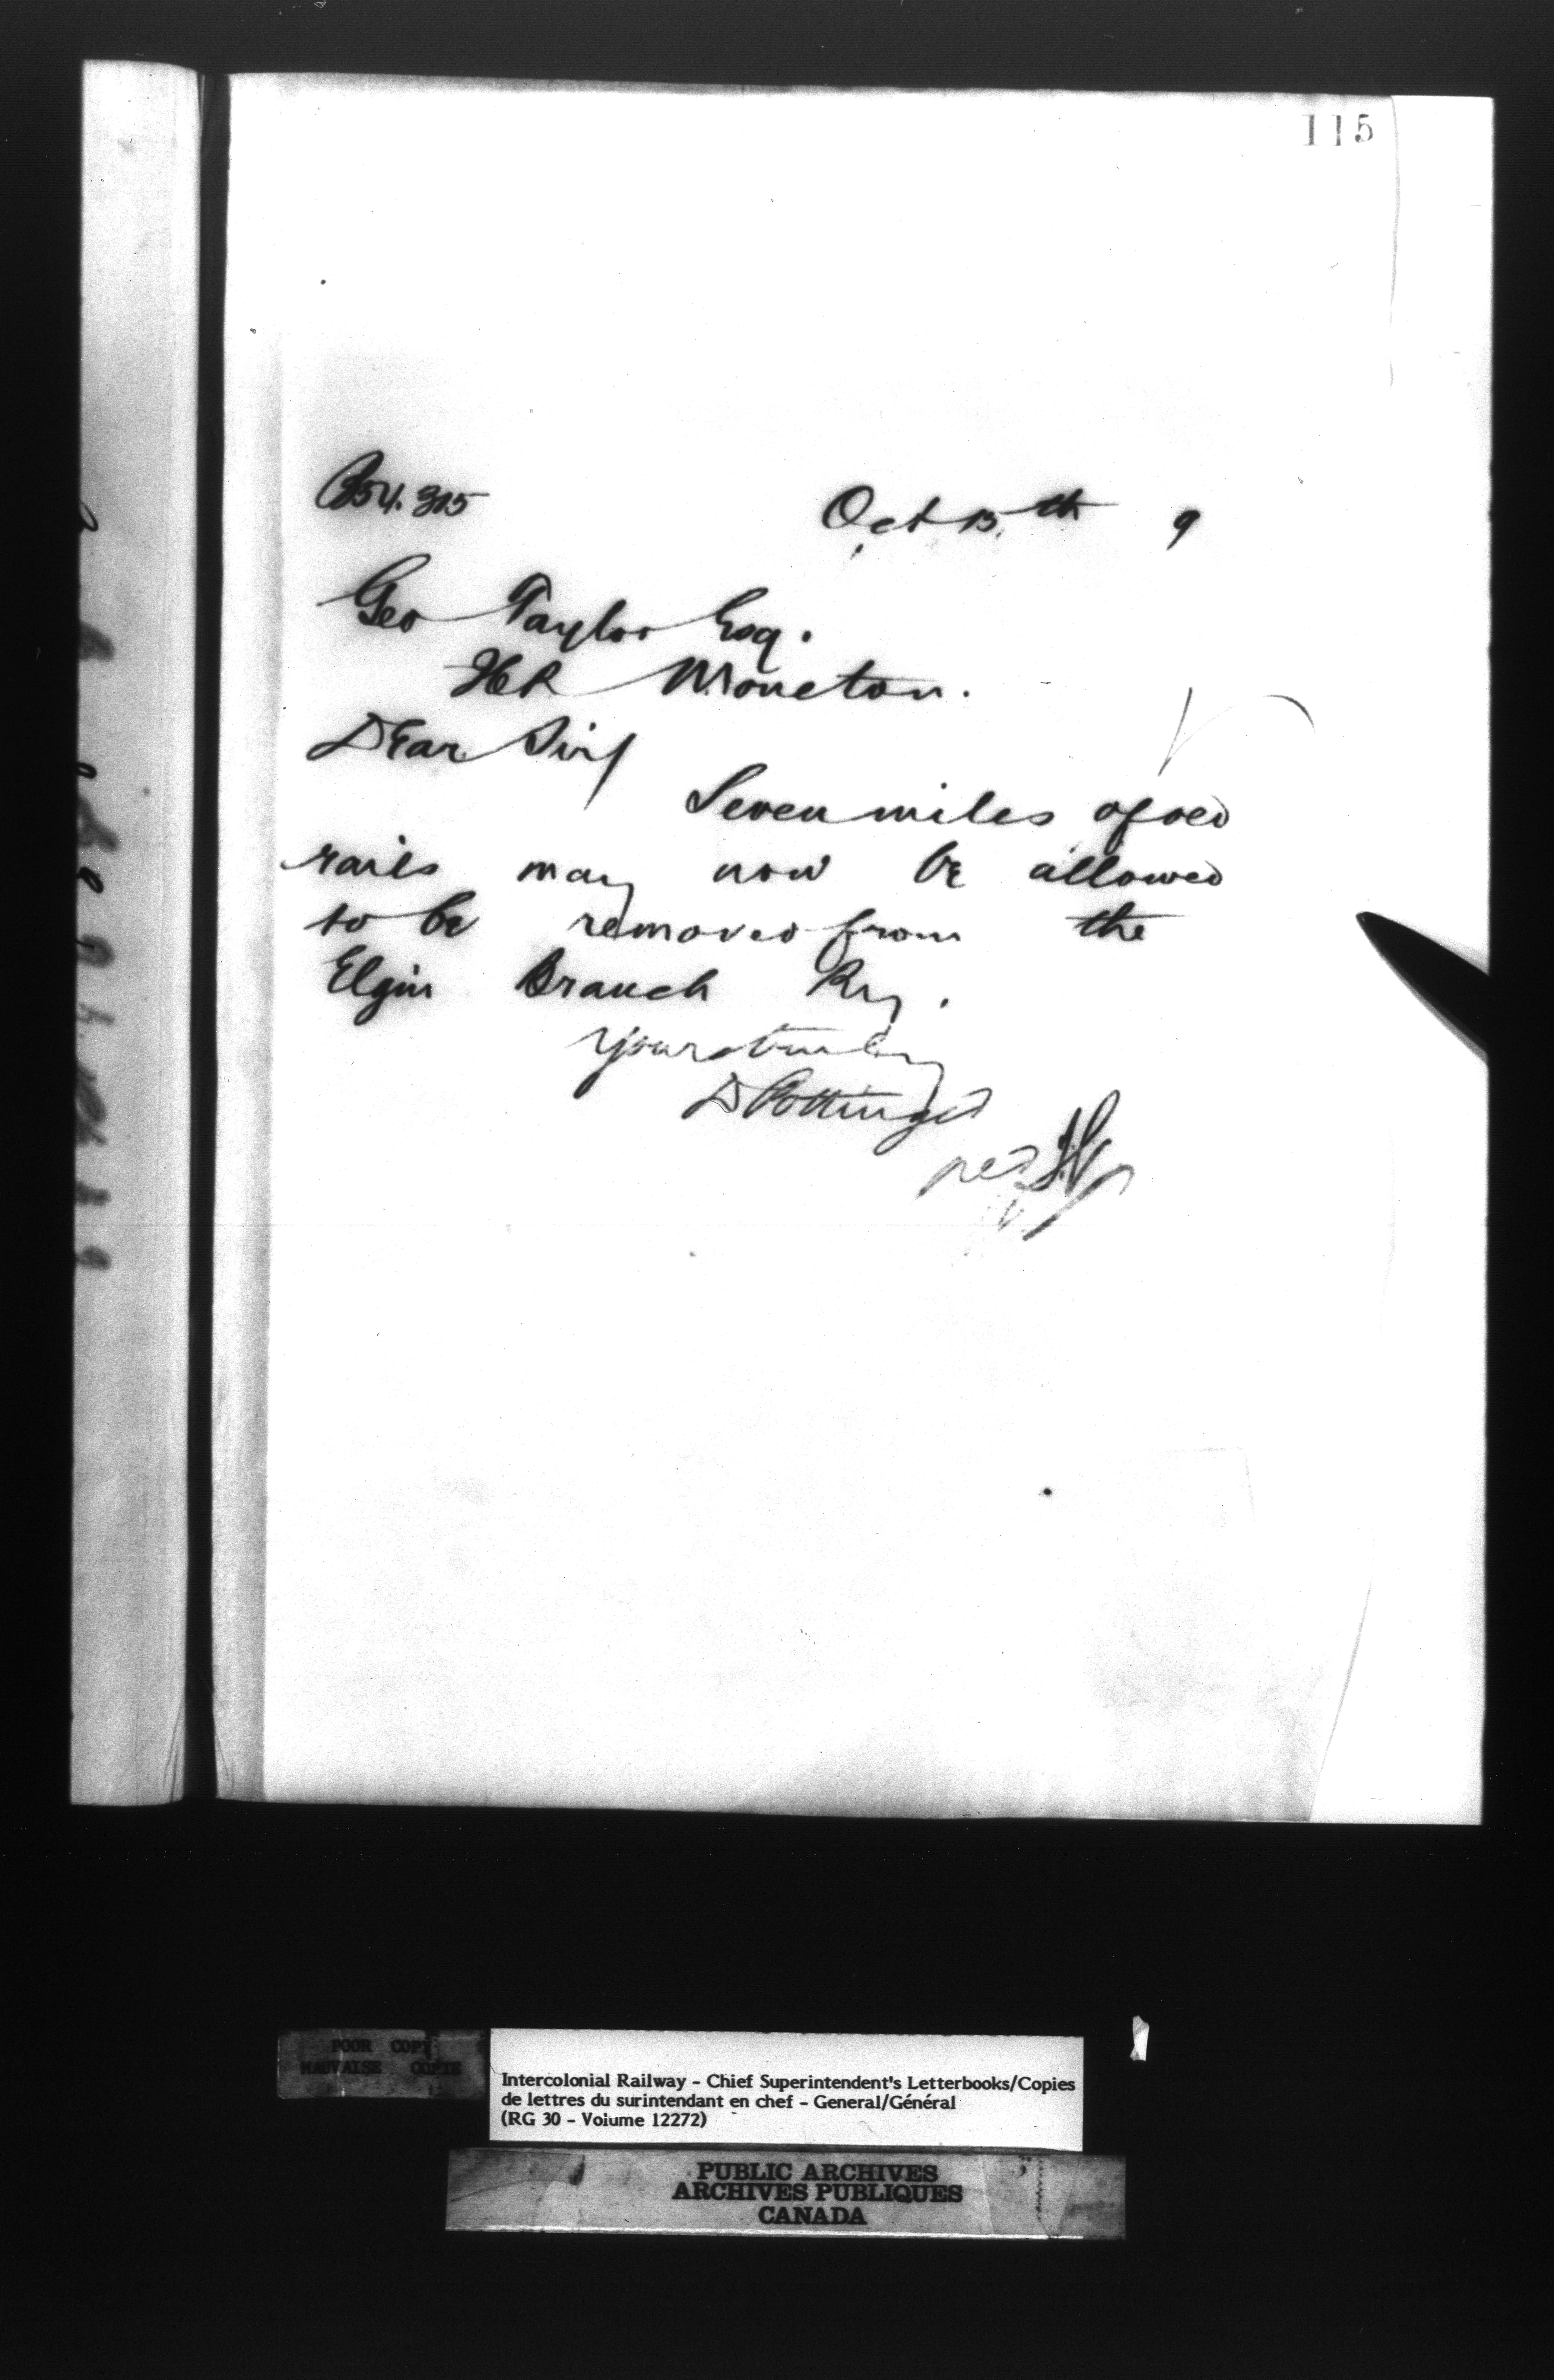 115
B54.315
Oct 15th 9
Geo Taylor Esq.
Moncton.
Dear Sir/
Seven miles of old
rails may now be allowed
to be removed from the
Elgin Branch Ry.
Yours truly
D Pottinger
per
POOR COPY
MAUVAISE COPIE
Intercolonial Railway - Chief Superintendent's Letterbooks/Copies
de lettres du surintendant en chef - General/Général
(RG 30 - Volume 12272)
PUBLIC ARCHIVES
ARCHIVES PUBLIQUES
CANADA